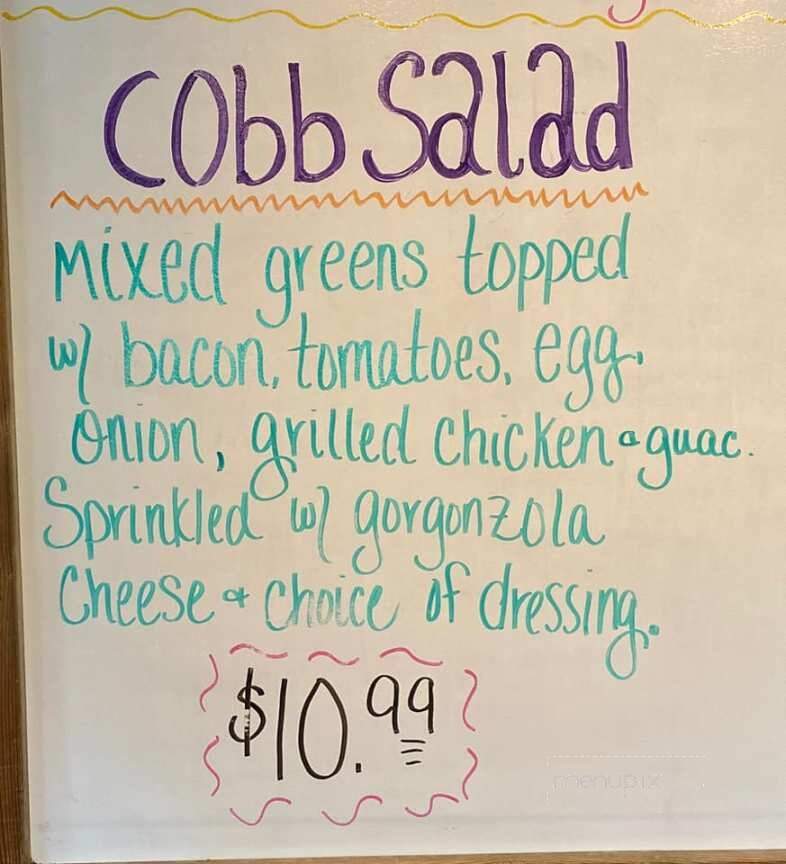 Cobb Salad
Mixed greens topped
w/ bacon, tomatoes, egg,
Onion, grilled chicken & guac.
Sprinkled w/ gorgonzola
Cheese & choice of dressing.
$10.99
menupix